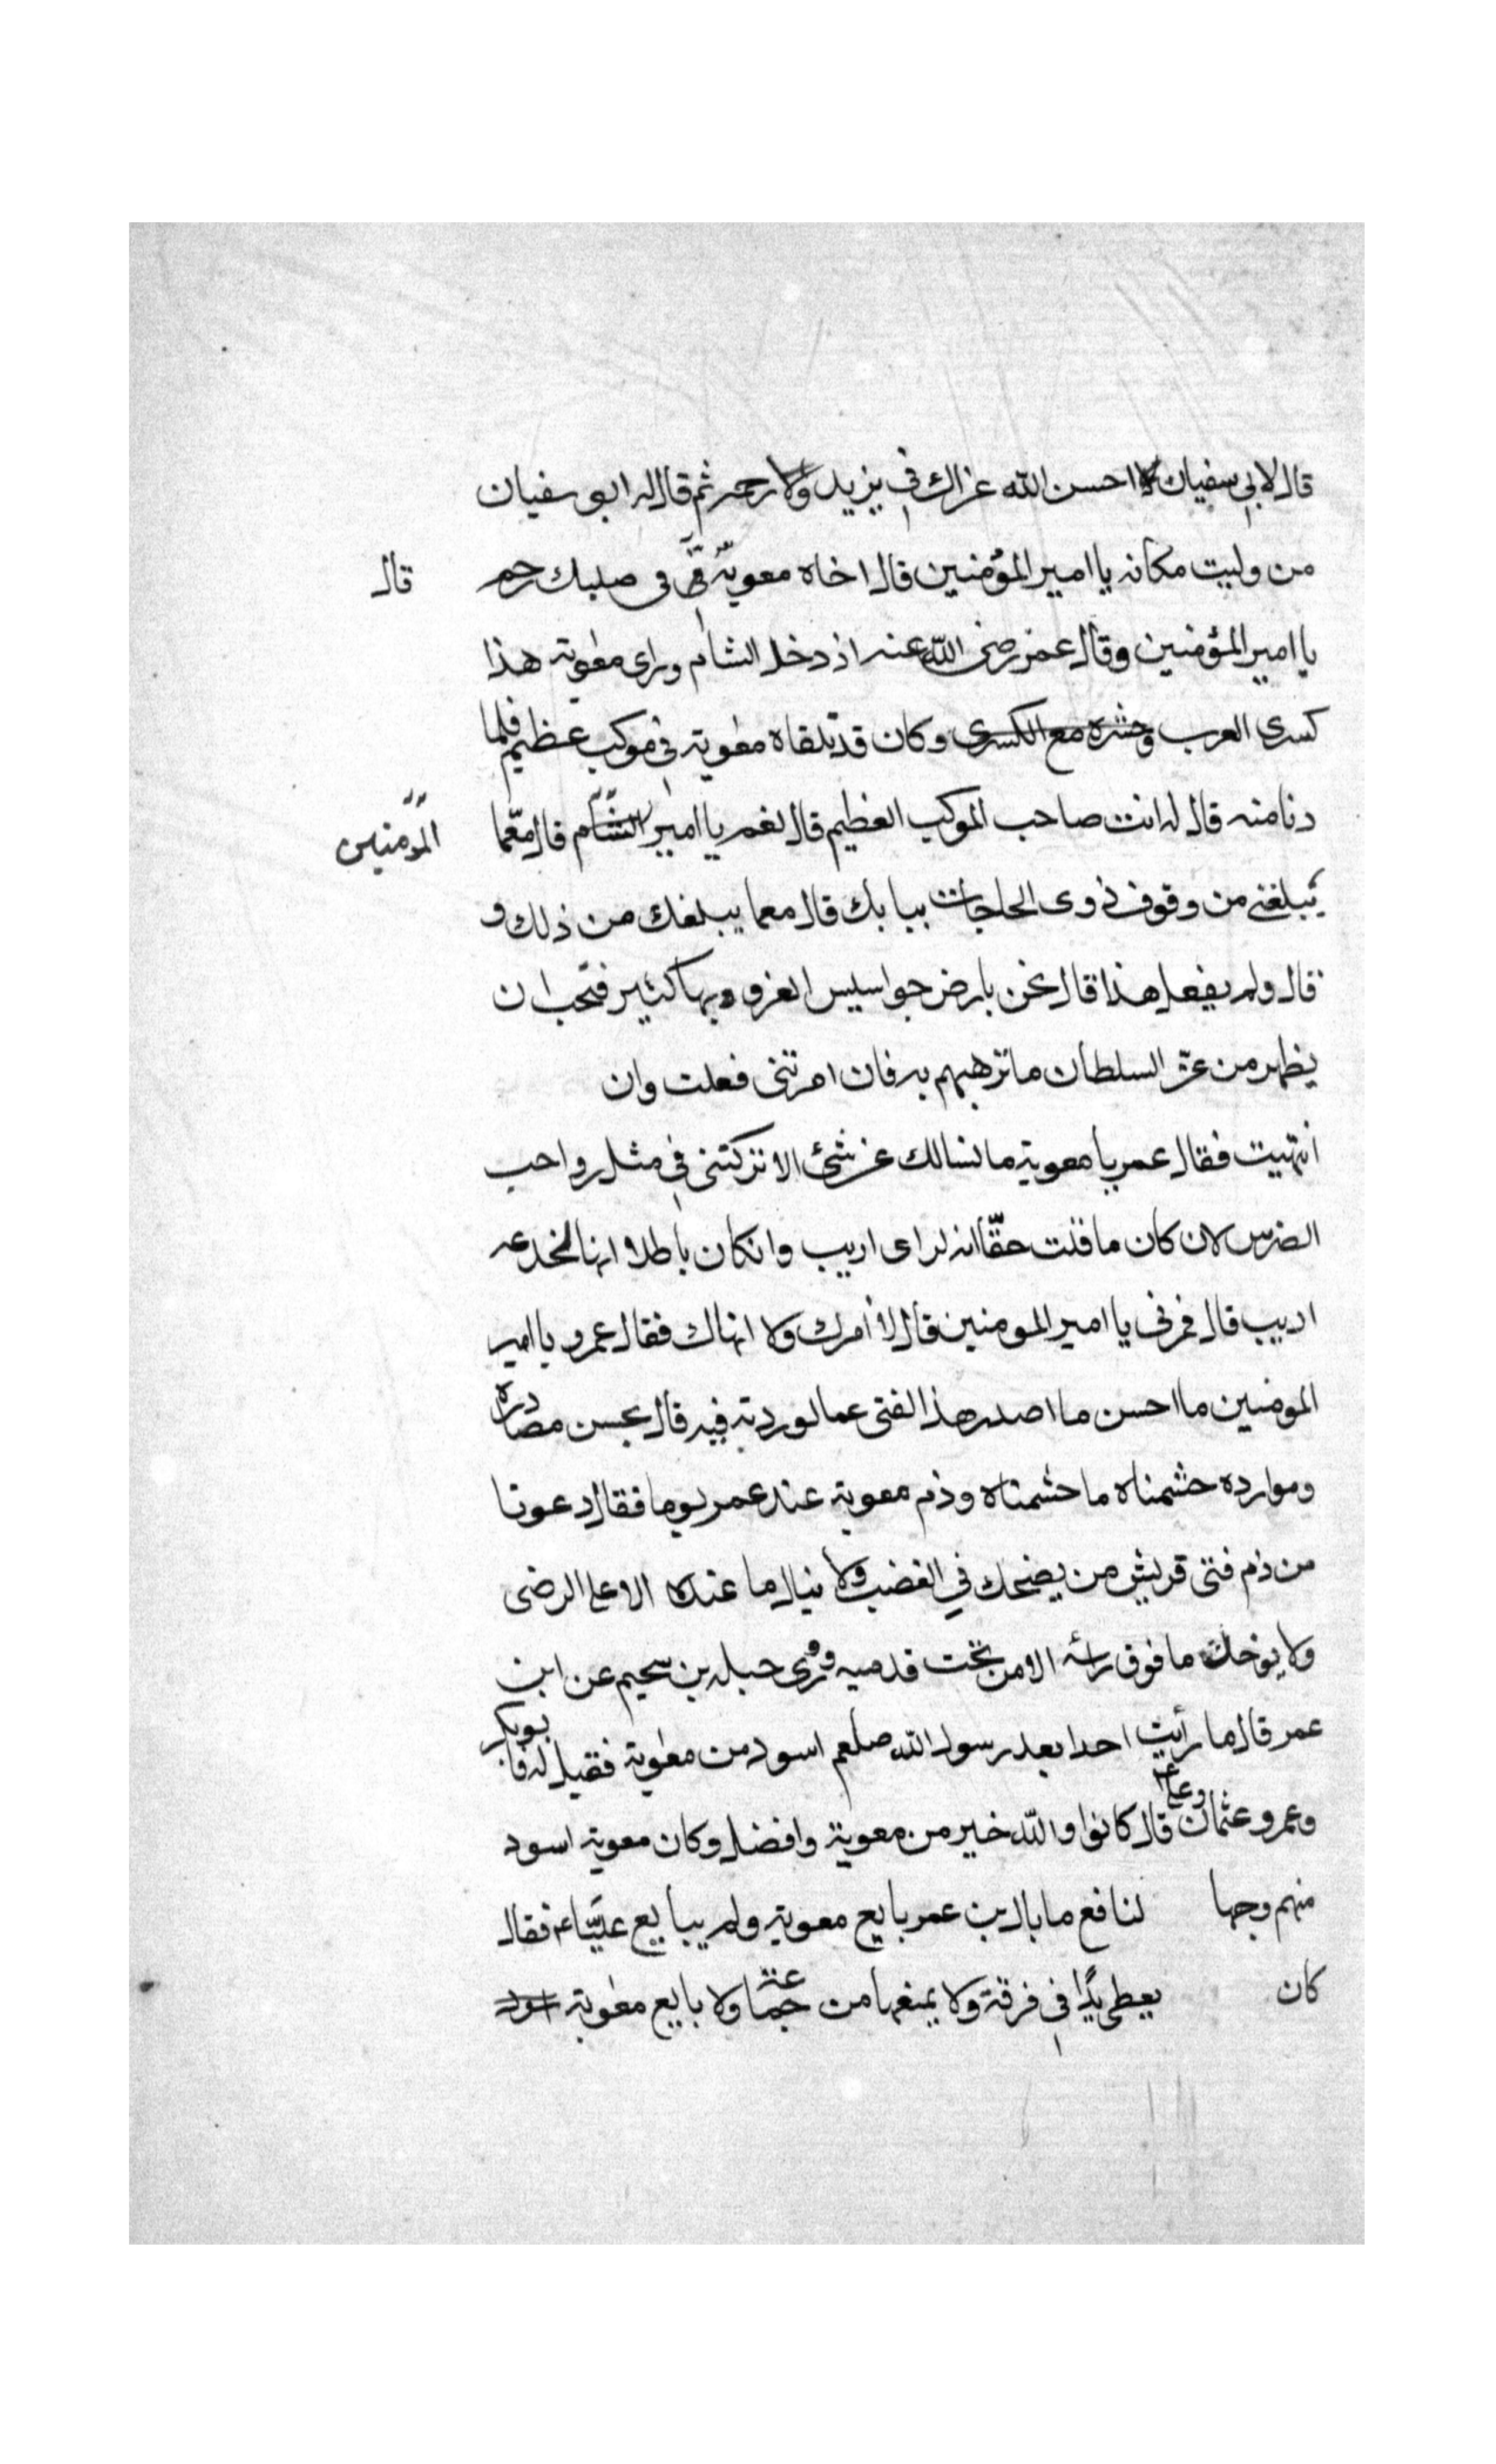 قال لابي سفيان لا احسن الله عزاك في يزيد ولا رحمه ثم قال له ابو سفيان
من وليت مكانه يا امير المؤمنين قال اخاه معوية في صلبك رحم قال
يا امير المؤمنين وقال عمر رضى الله عنه اذ دخل الشام وراى معوية هذا
كسرى العرب وحشره مع الكسرى وكان قد تلقاه معوية في موكب عظيم فلما
دنا منه قال له انت صاحب الموكب العظيم قال نعم يا امير الشام قال معما المؤمنين
يبلغنى من وقوف ذوى الحاجات ببابك قال معما يبلغك من ذلك و
قال ولم يفعل هذا قال نحن بارض جواسيس العزو وبها كثير فتحب ان
يظهر من عز السلطان ما ترهبهم به فان امرتنى فعلت وان
انتهيت فقال عمر يا معوية ما نسالك عن شئ الا تركتنى في مثل رواحب
الضرس لان كان ما قلت حقا انه لراى اريب وانكان باطلا انها لخدعه
اديب قال فمرنى يا امير المومنين قال لا أمرك ولا انهاك فقال عمرو يا امير
المومنين ما احسن ما اصدر هذا الفتى عما لوردته فيه قال بحسن مصادره
وموارده حشمناه ما حشمناه وذم معوية عند عمر يوما فقال دعونا
من ذم فتى قريش من يضحك في الغضب ولا ينال ما عنده الا على الرضى
ولا يوخذ ما فوق راسه الا من تحت قدميه وروى جبله بن سحيم عن ابن
عمر قال ما رأيت احدا بعد رسول الله صلعم اسود من معوية فقيل له فابوبكر
وعمر وعثمان وعلى قال كانوا والله خير من معوية وافضل وكان معوية اسود
منهم وجها لنافع ما بال بن عمر بايع معوية ولم يبايع عليا عم فقال
كان يعطى يدا في فرقة ولا يمنعها من جماعة ولا بايع معوية اسود